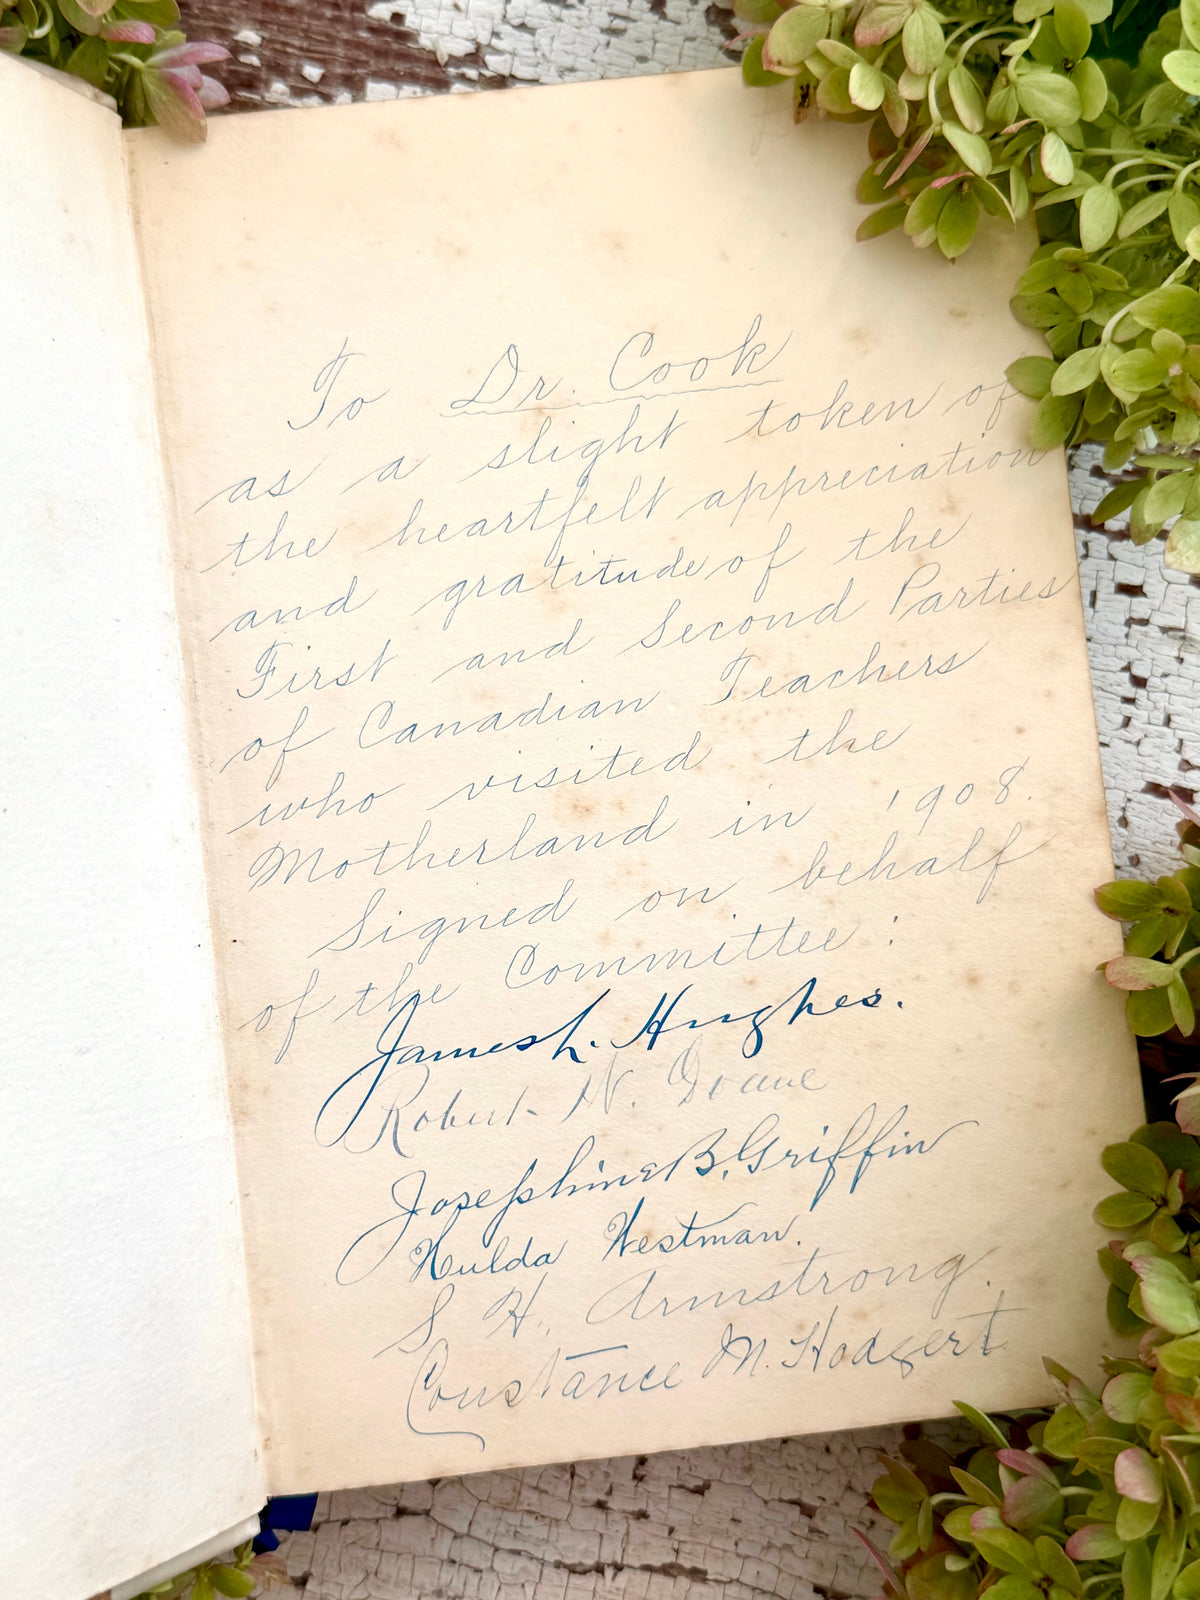 To Dr. Cook
as a slight token of
the heartfelt appreciation
and gratitude of the
First and Second Parties
of Canadian Teachers
who visited the
Motherland in 1908.
Signed on behalf
of the Committee:
James L. Hughes.
Robert W. Doane
Josephine B. Griffin
Hulda Westman.
S. H. Armstrong.
Constance M. Hodgert